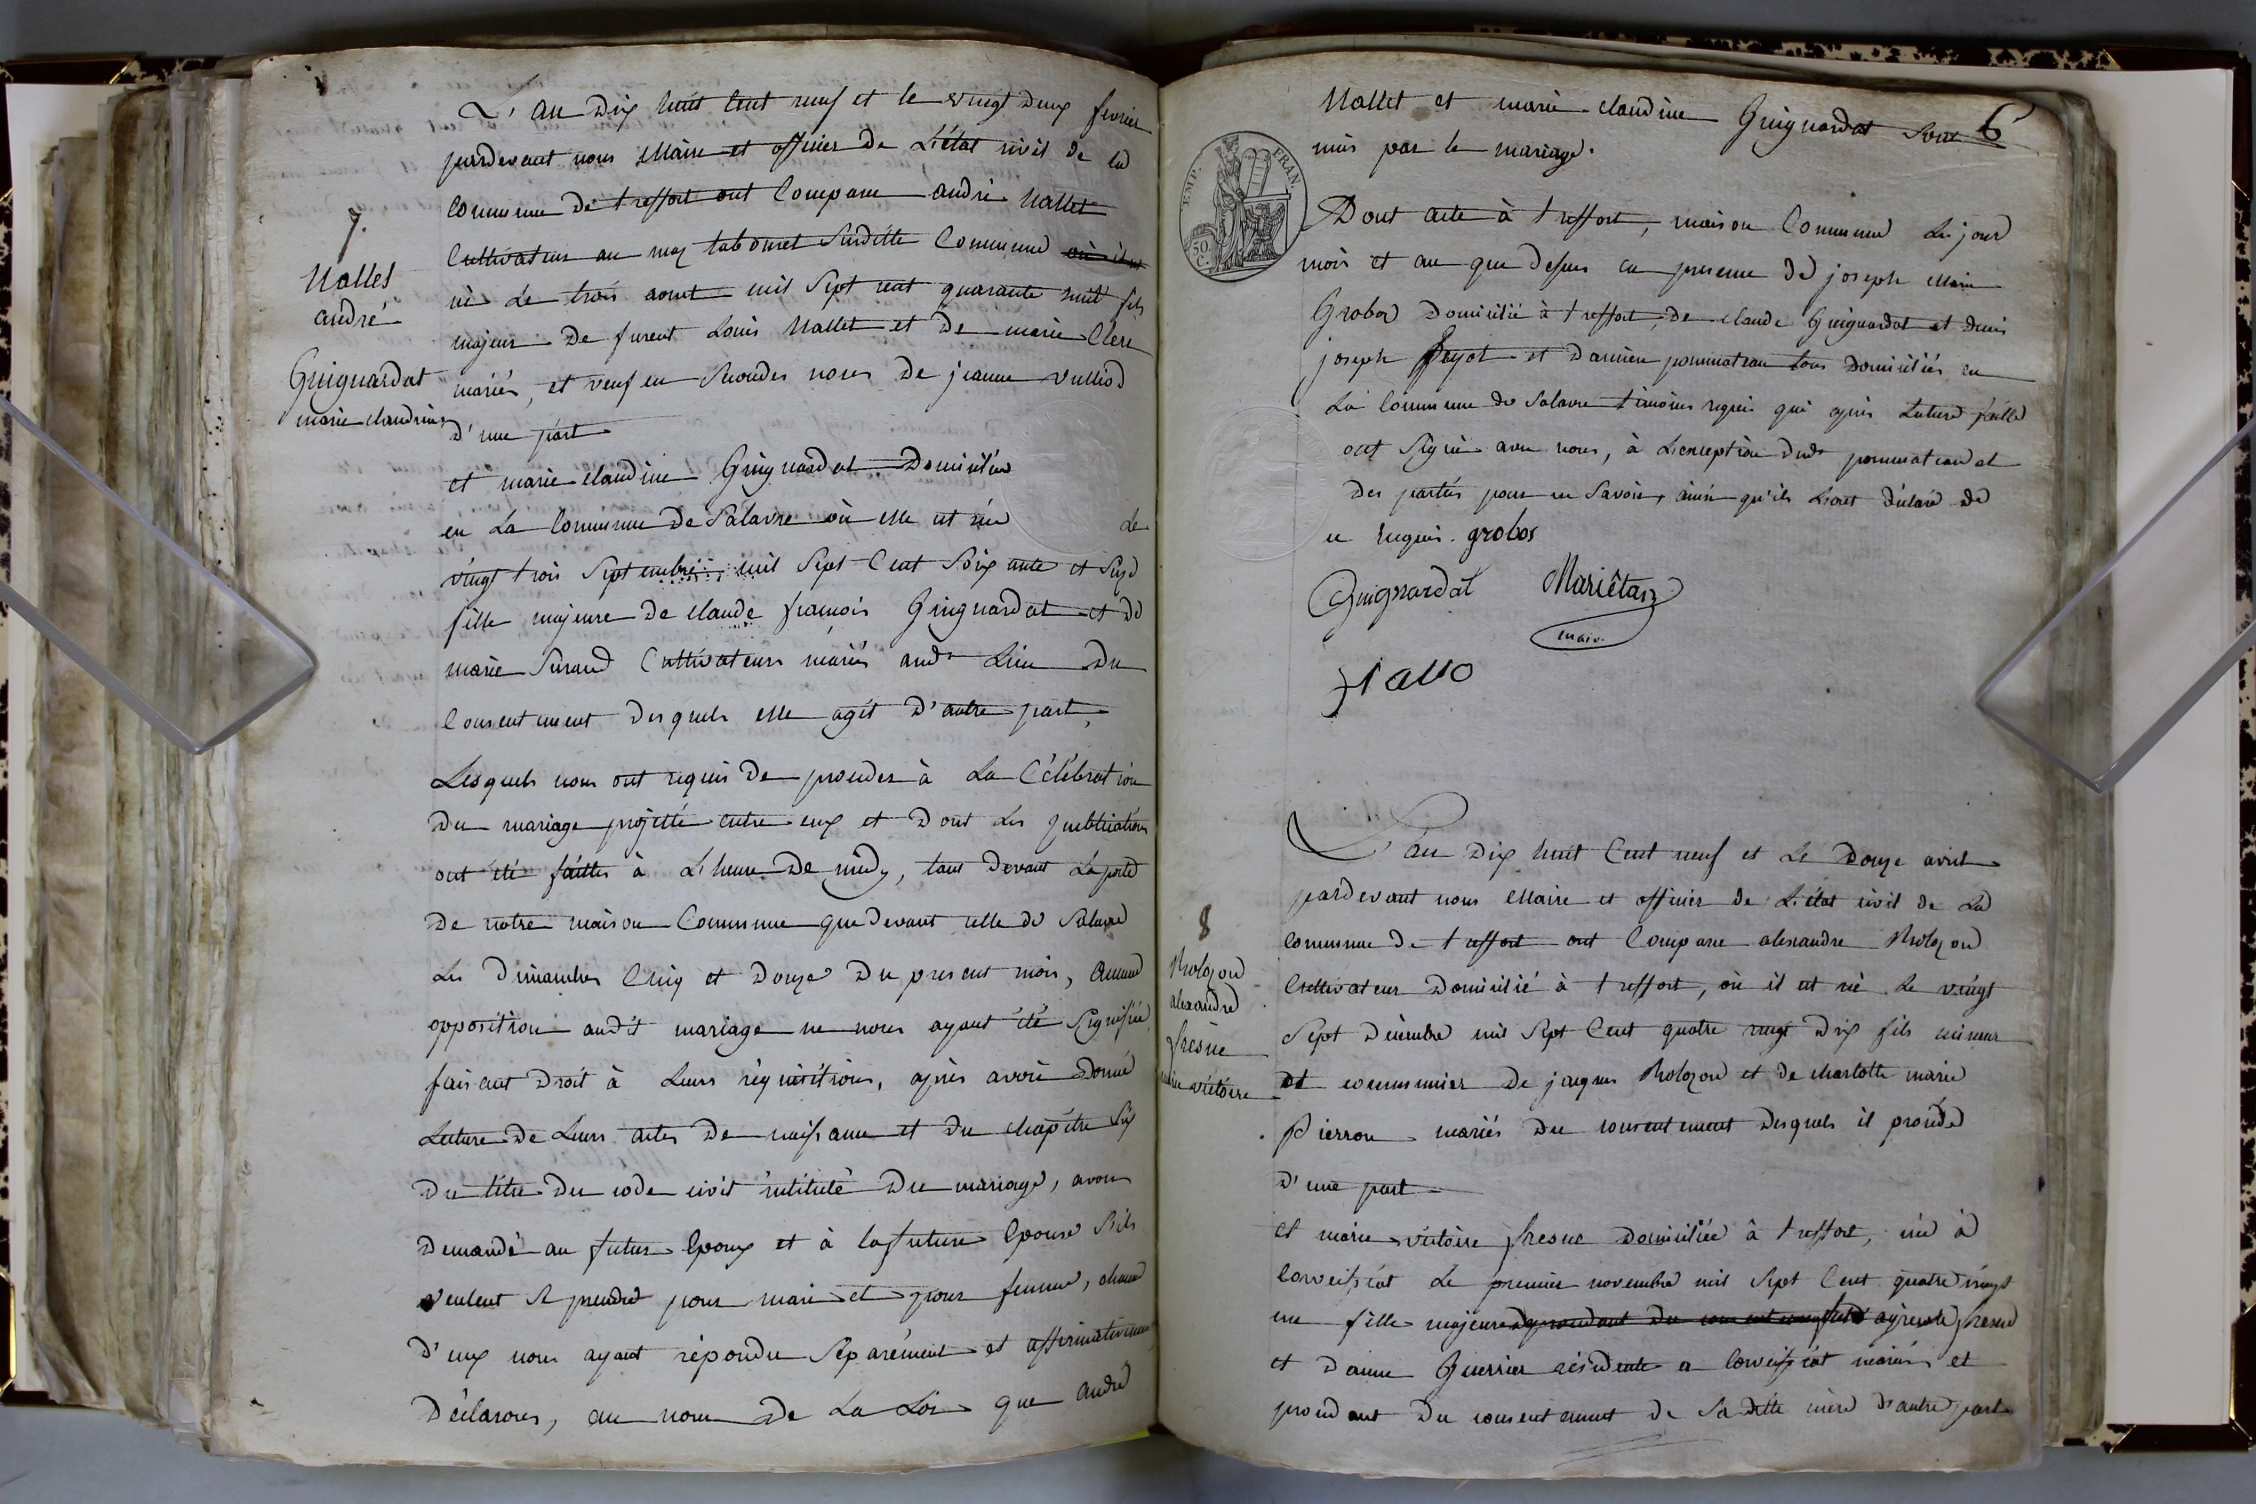 7.
Nallet
andré
Guignardat
marie claudine
L'an Dix huit Cent neuf et le vingt deux fevrier
pardevant nous Maire et officier de L'état civil de la
Commune de treffort ont Comparu andré Nallet
Cultivateur au max tabouret Surditte Commune où il est
né Le trois aoust mil Sept cent quarante huit fils
majeur De furent Louis Nallet et De marie Clere
mariés, et veuf en Secondes noces De jeanne vulliod
D'une part
et marie claudine Guignardat Domiciliée
en La Commune De Salavre où elle est née Le
vingt trois Septembre mil Sept Cent Soixante et
fille majeure De claude françois Guignardat et De
marie Cultivateurs mariés audt Lieu Du
Consentement Desquels elle agit D'autre part,
Lesquels nous ont requis De proceder à La Célébration
Du mariage projetté entre eux et Dont Les publications
ont été faittes à L'heure De midy, tant Devant La porte
De notre maison Commune que devant celle de Salavre
Les Dimanches Cinq et Douze Du present mois, Aucune
opposition audit mariage ne nous ayant été Signifiée
faisant Droit à Leurs réquisitions, après avoir Donné
Lecture De Leurs actes De naissance et Du chapitre Six
Du titre Du code civil intitulé Du mariage, avons
Demandé au futur Epoux et à la future Epouse S'ils
veulent se prendre pour mari et pour femme, chacun
D'eux nous ayant répondu Séparément et affirmativement
Déclarons, au nom De La Loi que André
6
Nallet et marie claudine Guignardat Sont
unis par le mariage.
EMP. FRAN.
50. C.
Dont acte à treffort, maison Commune Les jour
mois et an que Dessus en presence De joseph Marie
Grobos Domicilié à treffort, De claude Guignardat et denis
joseph et Damien pommateau tous Domiciliés en
La Commune de Salavre témoins requis qui après Lecture faitte
ont Signé avec nous, à L'exception Dudt pommateau et
Des parties pour ne Savoir, ainsi qu'ils L'ont déclaré De
ce requis. grobos
Guignardat Mariétan
maire
8
Rolozon
alexandre
fresne
marie victoire
L'an Dix huit Cent neuf et Le Douze avril
pardevant nous Maire et officier de L'état civil de La
Commune De treffort ont Comparu alexandre Rolozon
Cultivateur Domicilié à treffort, où il est né Le vingt
Sept Décembre mil Sept Cent quatre vingt Dix fils mineur
et communier De jacques Rolozon et de charlotte marie
Pierron mariés Du consentement Desquels il procède
D'une part
et marie victoire fresne Domiciliée à treffort, née à
Corveissiat Le premier novembre mil Sept Cent quatre vingt
une fille majeure fresne
et D'anne Guerrier résidente a Corveissiat mariés et
procedant Du consentement de Sa ditte mère D'autre part